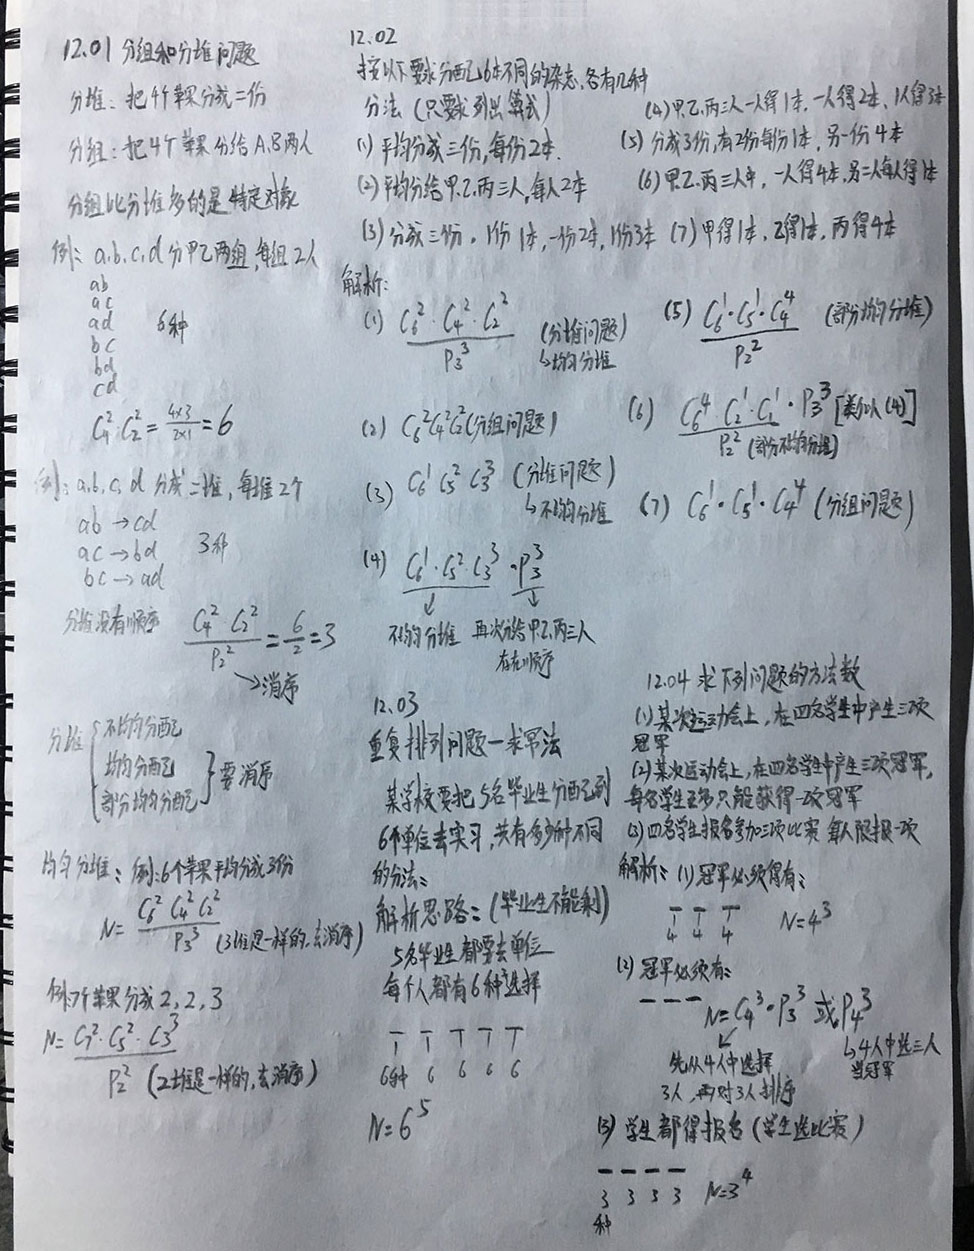 12.01 分组和分堆问题
分堆：把4个苹果分成二份
分组：把4个苹果分给A,B两人
分组比分堆多的是特定对象
例：a,b,c,d 分甲乙两组，每组2人
ab
ac
ad 6种
bc
bd
cd
C₄²·C₂² = 4×3/2×1 = 6
例：a,b,c,d 分成二堆，每堆2个
ab → cd
ac → bd 3种
bc → ad
分堆没有顺序 C₄² C₂² / P₂² = 6/2 = 3
↘消序
分堆 { 不均匀分配
均匀分配 } 要消序
部分均匀分配
均匀分堆：例：6个苹果平均分成3份
N = C₆² C₄² C₂² / P₃³ (3堆是一样的，去消序)
例：7个苹果分成2，2，3
N = C₇²·C₅²·C₃³ / P₂² (2堆是一样的，去消序)
12.02
按以下要求分配6本不同的杂志，各有几种
分法（只要求列出算式）
(1) 平均分成三份，每份2本.
(2) 平均分给甲.乙.丙三人，每人2本
(3) 分成三份，1份1本，一份2本，1份3本
(4) 甲.乙.丙三人一人得1本，一人得2本，1人得3本
(5) 分成3份，有2份每份1本，另一份4本
(6) 甲.乙.丙三人中，一人得4本，另二人每人得1本
(7) 甲得1本，乙得1本，丙得4本
解析：
(1) C₆²·C₄²·C₂² / P₃³ (分堆问题)
↳均匀分堆
(2) C₆²C₄²C₂² (分组问题)
(3) C₆¹ C₅² C₃³ (分堆问题)
↳不均匀分堆
(4) C₆¹·C₅²·C₃³ ·P₃³
↓ ↓
不均匀分堆 再次分给甲.乙.丙三人
存在顺序
(5) C₆¹·C₅¹·C₄⁴ / P₂² (部分均匀分堆)
(6) C₆⁴·C₂¹·C₁¹ / P₂² ·P₃³ [类似(4)]
(部分不均匀分堆)
(7) C₆¹·C₅¹·C₄⁴ (分组问题)
12.03
重复排列问题—求幂法
某学校要把5名毕业生分配到
6个单位去实习，共有多少种不同
的分法：
解析思路：(毕业生不能剩)
5名毕业生都要去单位
每个人都有6种选择
6种 6 6 6 6
N=6⁵
12.04 求下列问题的方法数
(1) 某次运动会上，在四名学生中产生三项
冠军
(2) 某次运动会上，在四名学生中产生三项冠军，
每名学生至多只能获得一项冠军
(3) 四名学生报名参加三项比赛 每人限报一项
解析：(1) 冠军必须得有：
4 4 4 N=4³
(2) 冠军必须有：
— — — N=C₄³·P₃³ 或 P₄³
先从4人中选择
3人，再对3人排序
↳4人中选三人
当冠军
(3) 学生都得报名（学生选比赛）
— — — —
3 3 3 3 N=3⁴
种